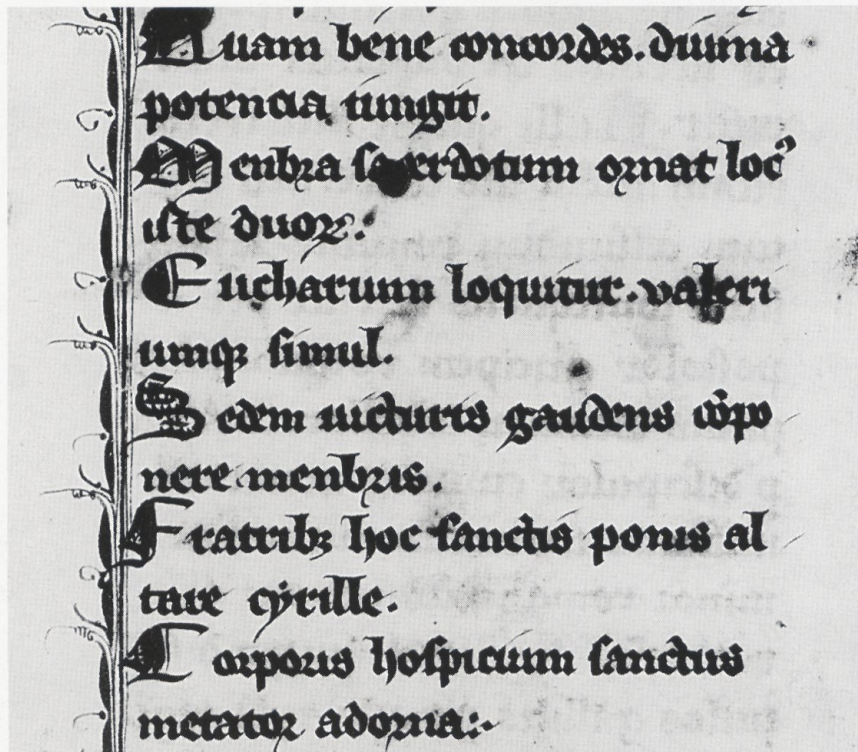 Quam bene concordes. diuina
potencia iungit.
Menbra sacerdotum ornat locꝰ
iste duoꝝ.
Eucharium loquitur. valeri
umqꝫ simul.
Sedem uicturis gaudens cōpo
nere menbris.
Fratribꝫ hoc sanctis ponis al
tare cyrille.
Corporis hospicium sanctus
metator adorna:-